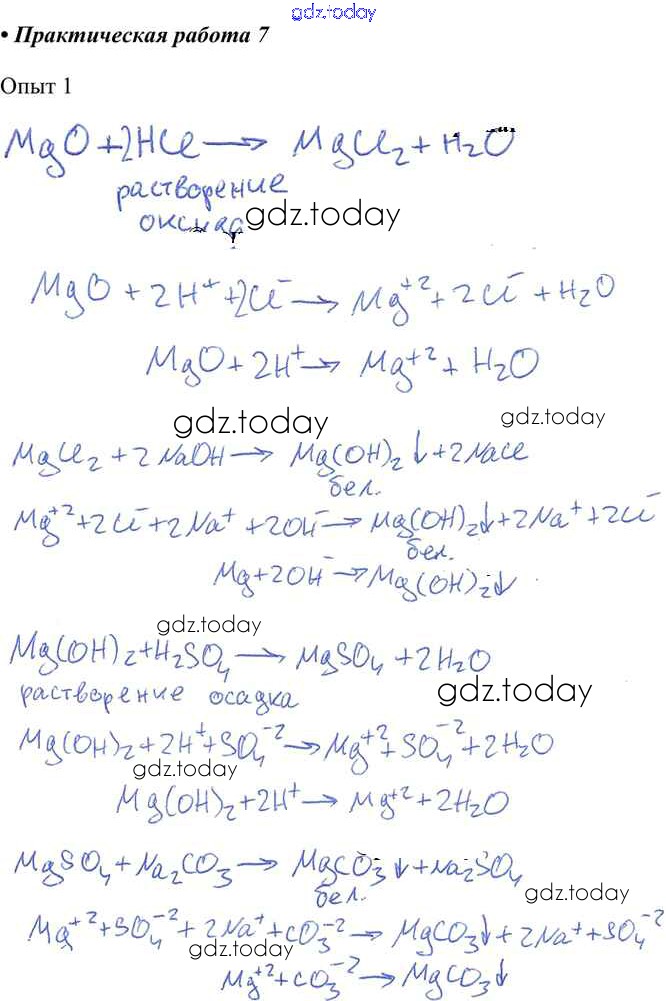 gdz.today
• Практическая работа 7
Опыт 1
MgO + 2HCl → MgCl₂ + H₂O
растворение
оксида gdz.today
MgO + 2H⁺ + 2Cl⁻ → Mg⁺² + 2Cl⁻ + H₂O
MgO + 2H⁺ → Mg⁺² + H₂O
gdz.today gdz.today
MgCl₂ + 2NaOH → Mg(OH)₂↓ + 2NaCl
бел.
Mg⁺² + 2Cl⁻ + 2Na⁺ + 2OH⁻ → Mg(OH)₂↓ + 2Na⁺ + 2Cl⁻
бел.
Mg + 2OH⁻ → Mg(OH)₂↓
gdz.today
Mg(OH)₂ + H₂SO₄ → MgSO₄ + 2H₂O
растворение осадка gdz.today
Mg(OH)₂ + 2H⁺ + SO₄⁻² → Mg⁺² + SO₄⁻² + 2H₂O
gdz.today
Mg(OH)₂ + 2H⁺ → Mg⁺² + 2H₂O
MgSO₄ + Na₂CO₃ → MgCO₃↓ + Na₂SO₄
бел. gdz.today
Mg⁺² + SO₄⁻² + 2Na⁺ + CO₃⁻² → MgCO₃↓ + 2Na⁺ + SO₄⁻²
gdz.today
Mg⁺² + CO₃⁻² → MgCO₃↓